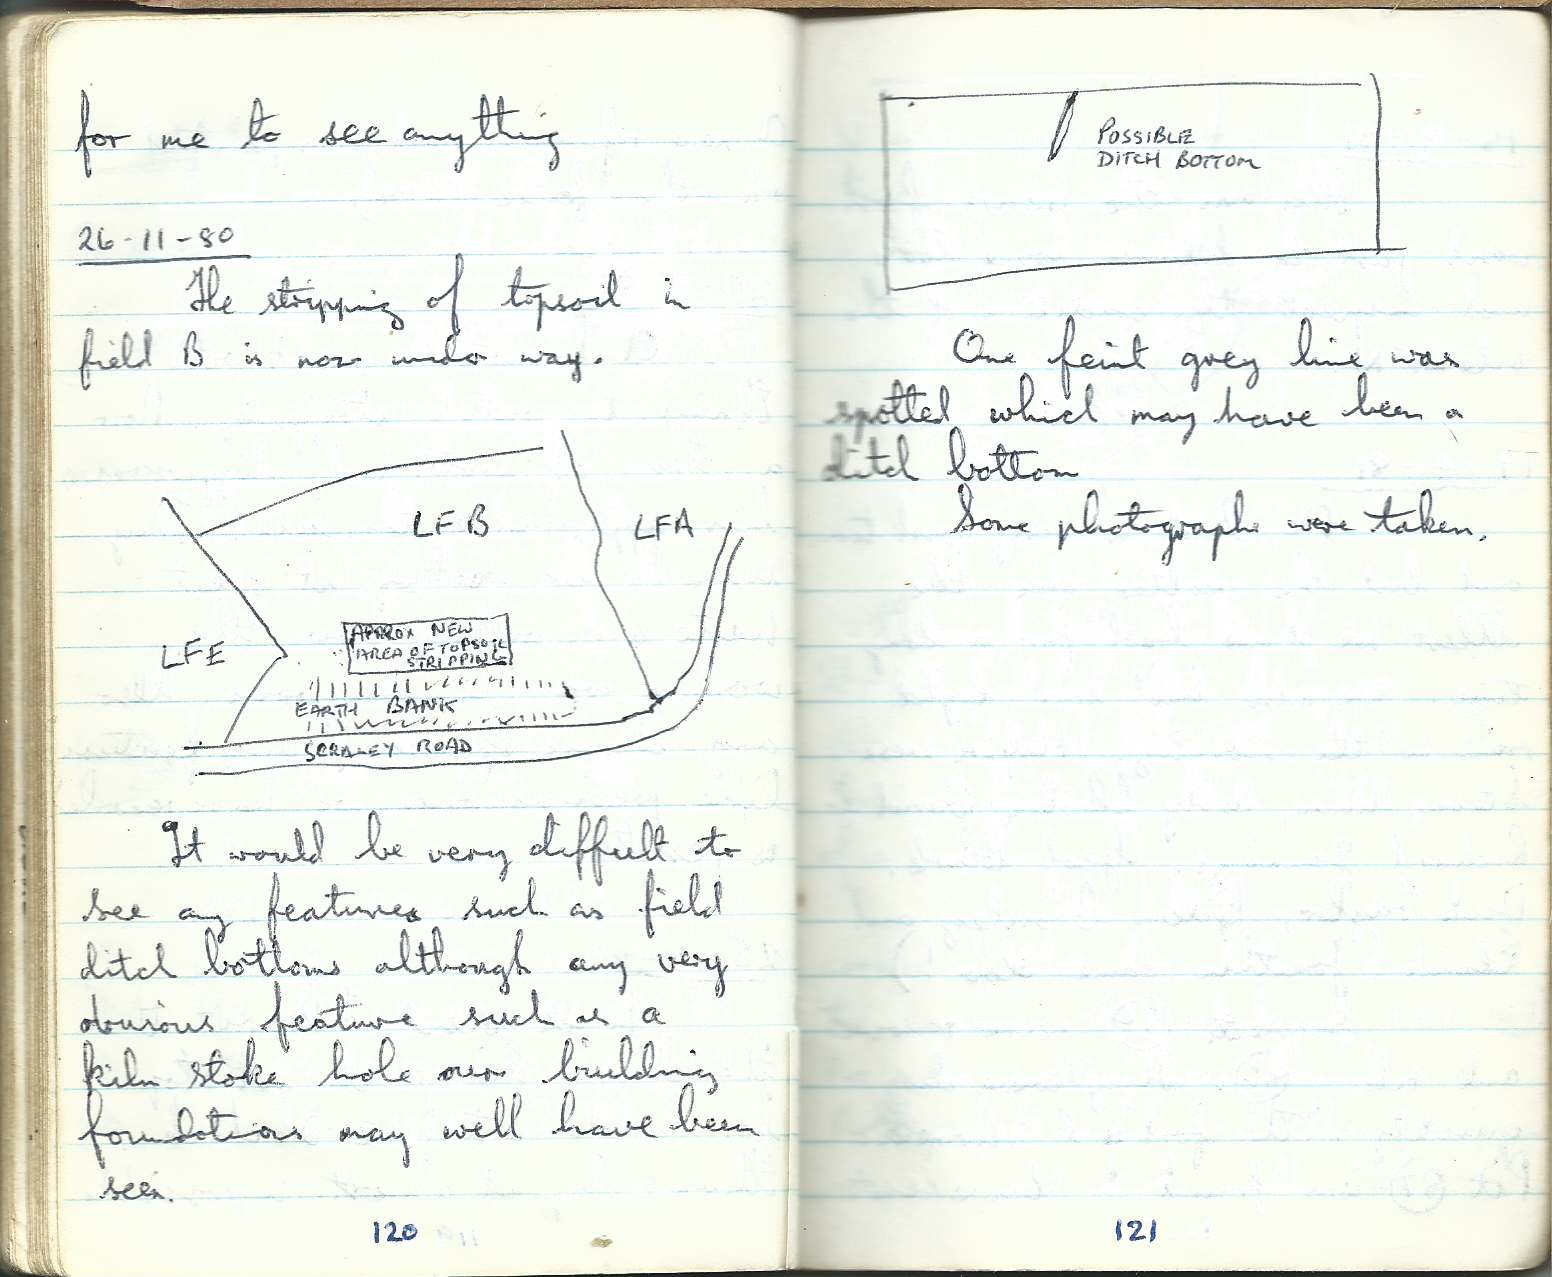 for me to see anything
26-11-80
The stripping of topsoil in
field B is now under way.
LFB
LFA
LFE
APPROX NEW
AREA OF TOPSOIL
STRIPPING
EARTH BANK
SCRALEY ROAD
It would be very difficult to
see any features such as field
ditch bottoms although any very
obvious feature such as a
kiln stoke hole over building
foundations may well have been
seen.
120
POSSIBLE
DITCH BOTTOM
One feint grey line was
spotted which may have been a
ditch bottom
Some photographs were taken.
121